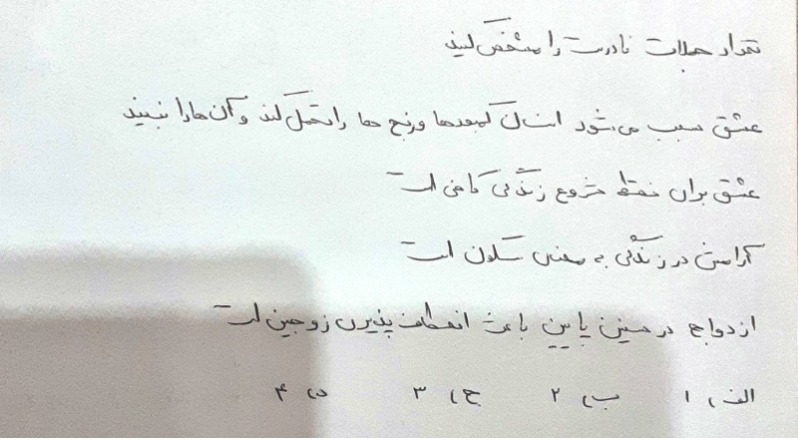 تعداد جملات نادرست را مشخص کنید
عشق سبب می‌شود انسان کمبودها و رنج ها را تحمل کند و آن ها را نبیند
عشق برای فقط شروع زندگی کافی است
آرامش در زندگی به معنی سکون است
ازدواج در سنین پایین باعث انعطاف پذیری زوجین است
الف) ۱ ب) ۲ ج) ۳ د) ۴